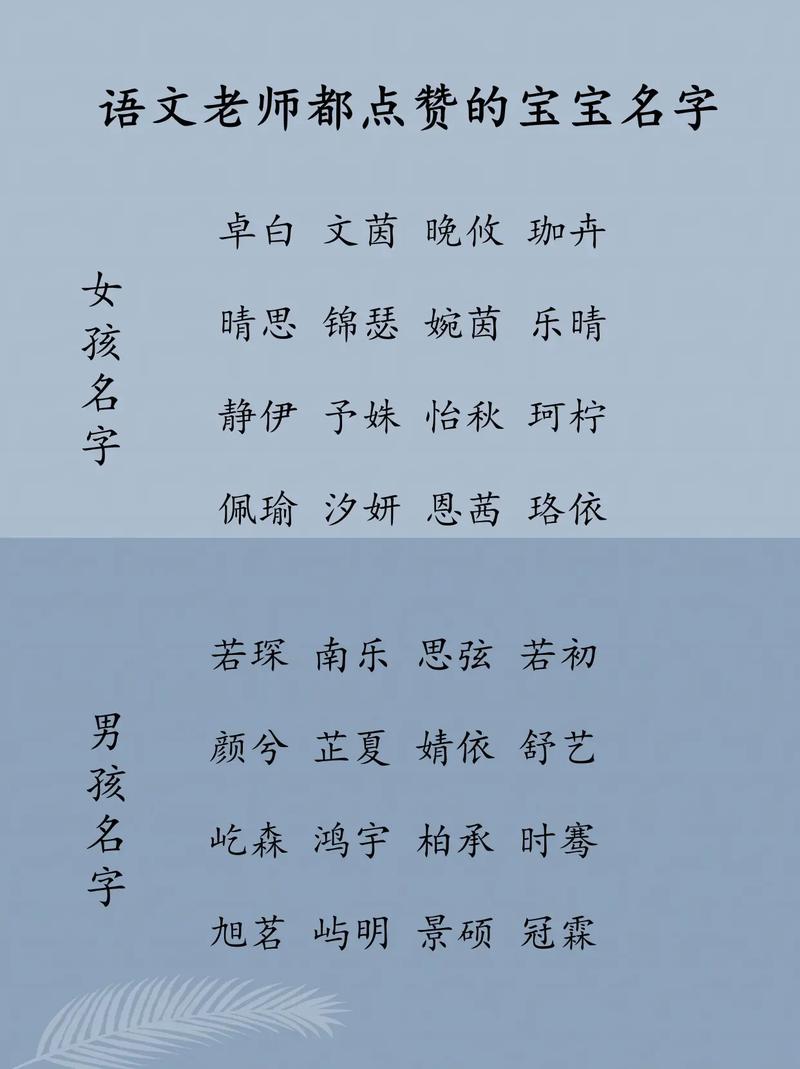 语文老师都点赞的宝宝名字
女孩名字
卓白 文茵 晚攸 珈卉
晴思 锦瑟 婉茵 乐晴
静伊 予姝 怡秋 珂柠
佩瑜 汐妍 恩茜 珞依
男孩名字
若琛 南乐 思弦 若初
颜兮 芷夏 婧依 舒艺
屹森 鸿宇 柏承 时骞
旭茗 屿明 景硕 冠霖